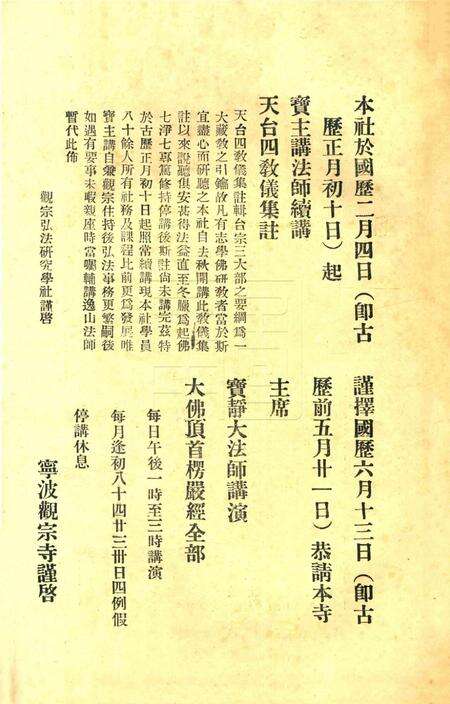 本社於國歷二月四日（卽古
歷正月初十日）起
寶主講法師續講
天台四教儀集註
天台四教儀集註輯台宗三大部之要綱爲一
大藏教之引鑰故凡有志學佛研教者當於斯
宜盡心而研聽之本社自去秋開講此教儀集
註以來說聽俱安甚得法益直至冬臘爲起佛
七淨七耶篤修持停講後斯註尙未講完茲特
於古歷正月初十日起照常續講現本社學員
八十餘人所有社務及課程比前更爲發展唯
寶主講自兼觀宗住持後弘法事務更繁嗣後
如遇有要事未暇親座時當囑輔講逸山法師
暫代此佈
觀宗弘法研究學社謹啓
謹擇國歷六月十三日（卽古
歷前五月廿一日）恭請本寺
主席
寶靜大法師講演
大佛頂首楞嚴經全部
每日午後一時至三時講演
每月逢初八十四廿三卅日四例假
停講休息
寧波觀宗寺謹啓